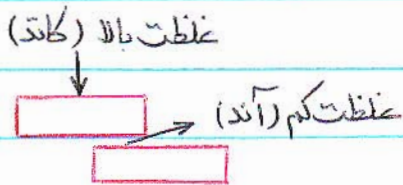 غلظت بالا (کاتد)
غلظت کم (آند)